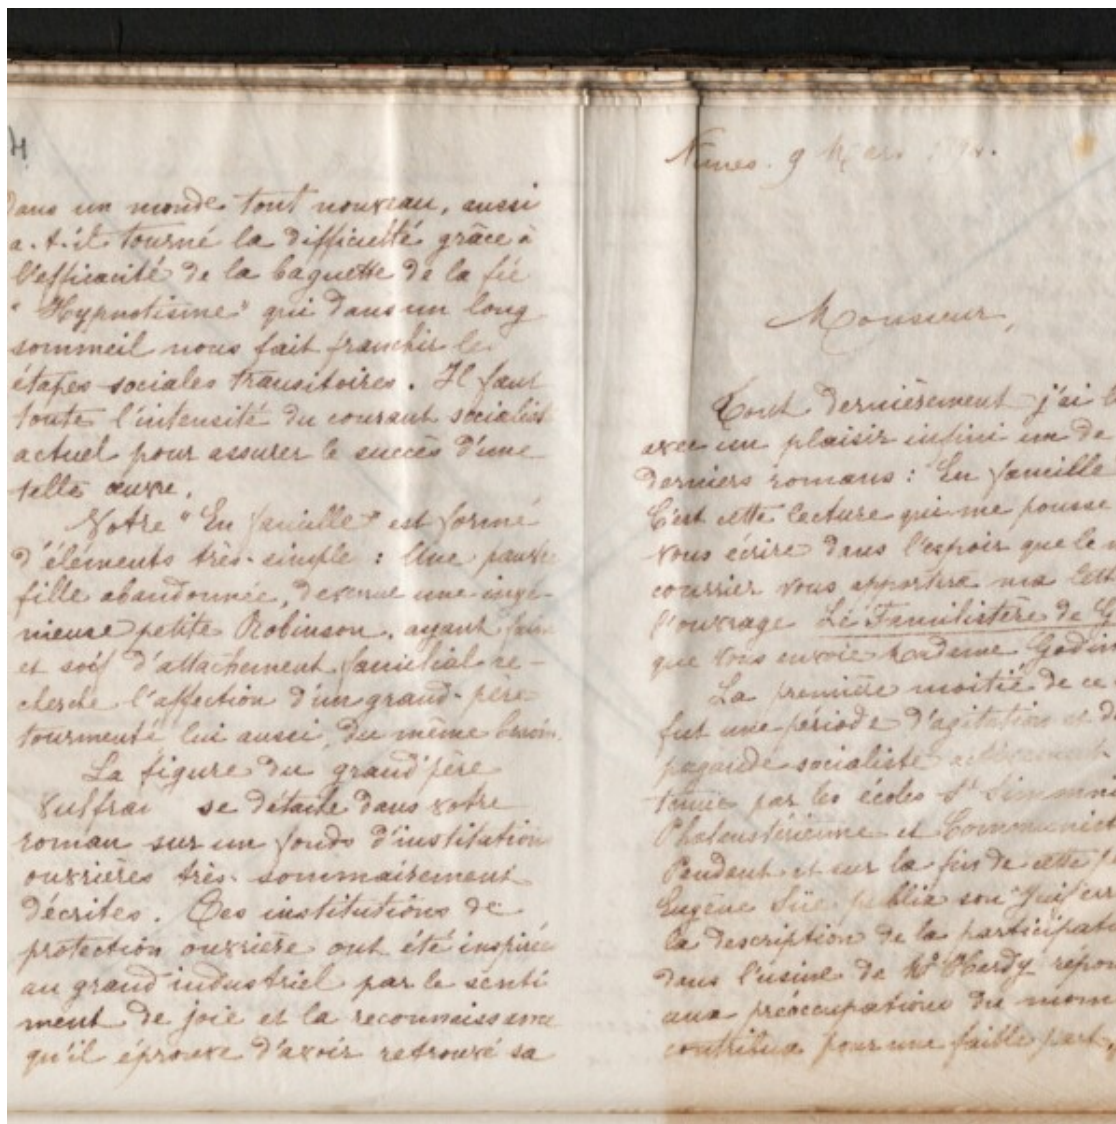 4
dans un monde tout nouveau, aussi
a-t-il tourné la difficulté grâce à
l'efficacité de la baguette de la fée
"Hypnotisme" qui dans un long
sommeil nous fait franchir les
étapes sociales transitoires. Il faut
toute l'intensité du courant socialist
actuel pour assurer le succès d'une
telle œuvre.
Votre "En famille" est formé
d'éléments très-simple : Une pauvre
fille abandonnée, devenue une ingé-
nieuse petite Robinson, ayant faim
et soif d'attachement familial re-
cherche l'affection d'un grand-père
tourmenté lui aussi, du même besoin.
La figure du grand'père
Vulfran se détache dans votre
roman sur un fonds d'institution
ouvrières très-sommairement
décrites. Ces institutions de
protection ouvrière ont été inspirée
au grand industriel par le senti
ment de joie et la reconnaissance
qu'il éprouve d'avoir retrouvé sa
Nimes. 9 Mars
Monsieur,
Tout dernièrement j'ai l
avec un plaisir infini un de
derniers romans : En famille
C'est cette lecture qui me pousse
vous écrire dans l'espoir que le
courrier vous apportera ma lett
l'ouvrage Le Familistère de G
que vous envoie Madame Godin
La première moitié de ce
fut une période d'agitation et d
pagande socialiste activement
tenue par les écoles St Simoni
Phalanstérienne et Communist
Pendant et sur la fin de cette p
Eugène Süe publia son "Juif err
la description de la participati
dans l'usine de Mr Hardy répon
aux préoccupations du mom
contribua pour une faible part,